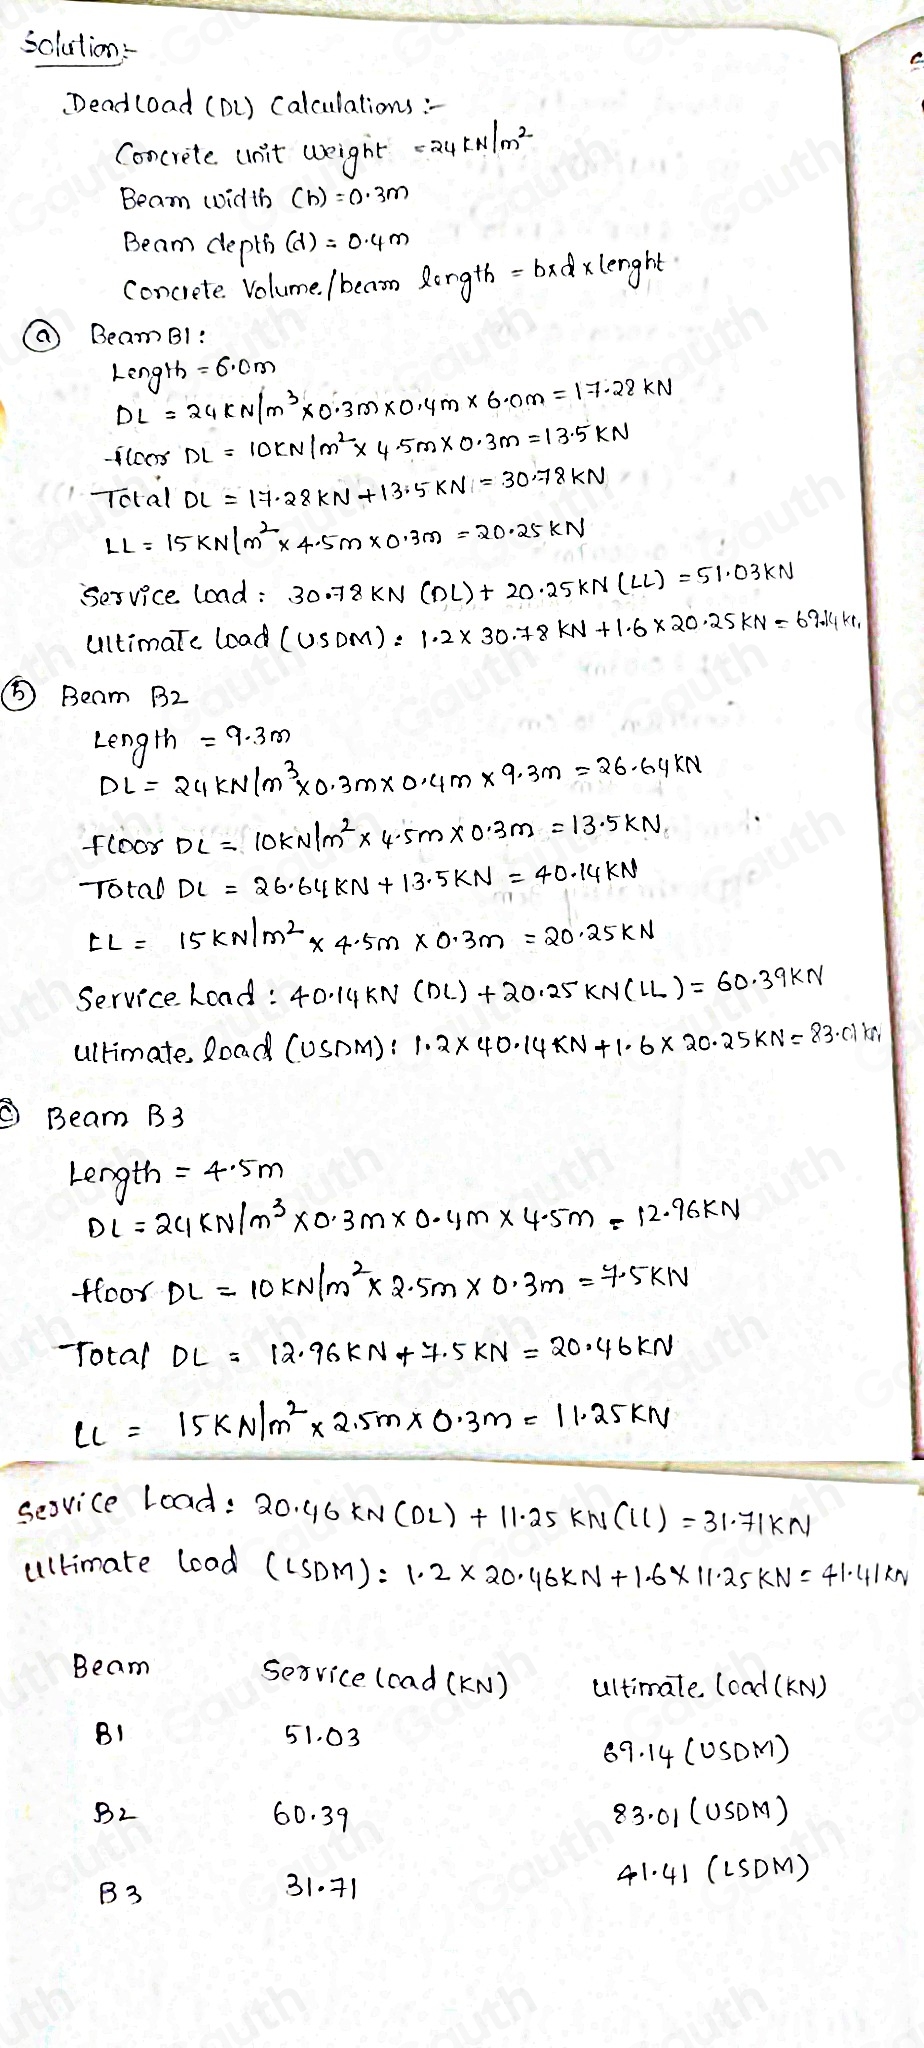 Solution:-
Dead load (DL) Calculations :-
Concrete unit weight = 24 KN/m²
Beam width (b) = 0.3m
Beam depth (d) = 0.4m
Concrete Volume/beam length = b×d×lenght
(a) Beam B1:
Length = 6.0m
DL = 24KN/m³ × 0.3m × 0.4m × 6.0m = 17.28 KN
floor DL = 10KN/m² × 4.5m × 0.3m = 13.5 KN
Total DL = 17.28KN + 13.5KN = 30.78KN
LL = 15KN/m² × 4.5m × 0.3m = 20.25KN
Service load : 30.78KN (DL) + 20.25KN (LL) = 51.03KN
Ultimate load (USDM) : 1.2 × 30.78 KN + 1.6 × 20.25KN = 69.14 kn
(b) Beam B2
Length = 9.3m
DL = 24KN/m³ × 0.3m × 0.4m × 9.3m = 26.64KN
floor DL = 10KN/m² × 4.5m × 0.3m = 13.5KN
Total DL = 26.64KN + 13.5KN = 40.14KN
LL = 15KN/m² × 4.5m × 0.3m = 20.25KN
Service Load : 40.14KN (DL) + 20.25 KN (LL) = 60.39KN
Ultimate load (USDM) : 1.2 × 40.14KN + 1.6 × 20.25KN = 83.01 kn
(c) Beam B3
Length = 4.5m
DL = 24KN/m³ × 0.3m × 0.4m × 4.5m = 12.96KN
floor DL = 10KN/m² × 2.5m × 0.3m = 7.5KN
Total DL = 12.96KN + 7.5KN = 20.46KN
LL = 15KN/m² × 2.5m × 0.3m = 11.25KN
Service Load : 20.46 KN (DL) + 11.25 KN (LL) = 31.71KN
Ultimate load (LSDM) : 1.2 × 20.46KN + 1.6 × 11.25KN = 41.41KN
Beam Service load (KN) Ultimate load (KN)
B1 51.03 69.14 (USDM)
B2 60.39 83.01 (USDM)
B3 31.71 41.41 (LSDM)